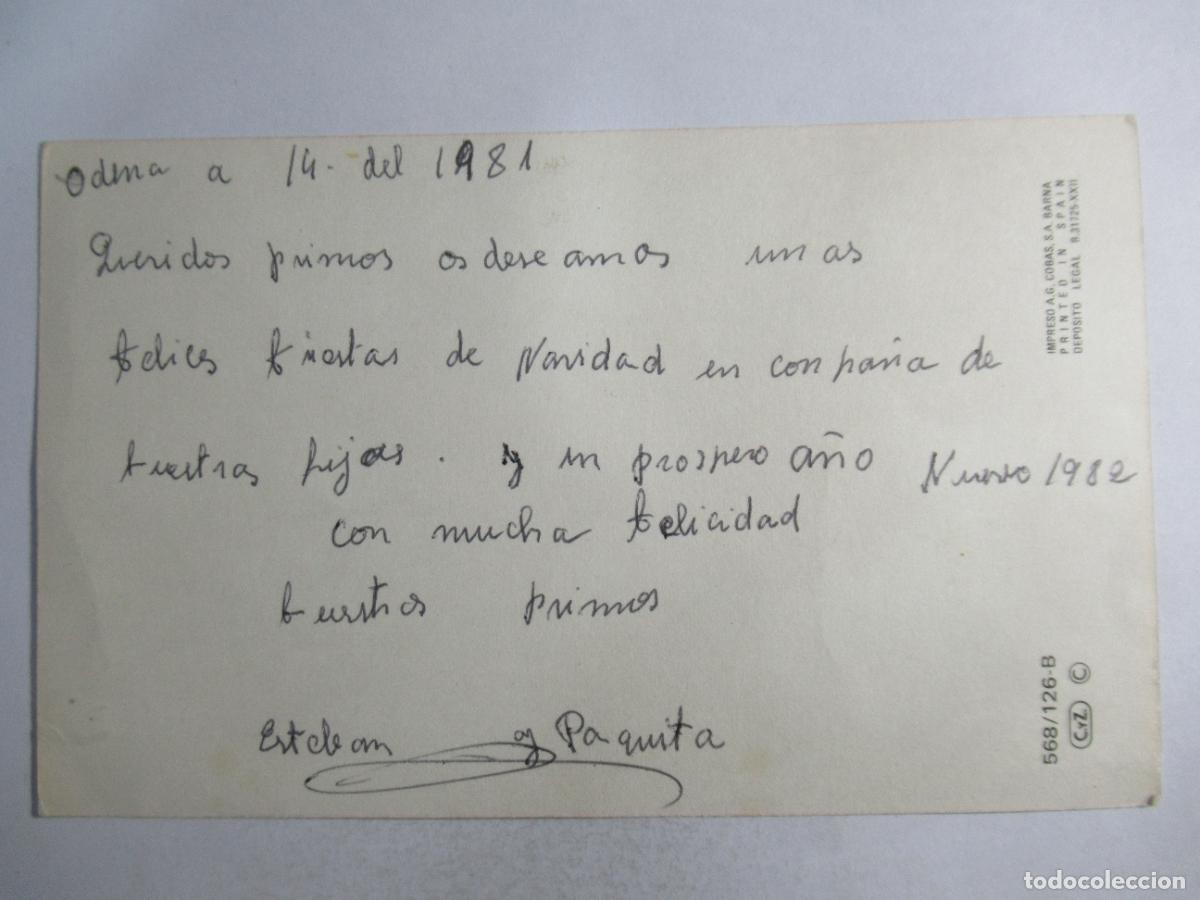 Odena a 14. del 1981
Queridos primos os deseamos unas
felices fiestas de Navidad en conpañia de
buestras hijas. y un prospero año Nuevo 1982
con mucha felicidad
buestros primos
Esteban y Paquita
IMPRESO A.G. COBAS, S.A. BARNA
PRINTED IN SPAIN
DEPOSITO LEGAL B.31725-XXII
568/126-B
C.YZ. ©
todocoleccion